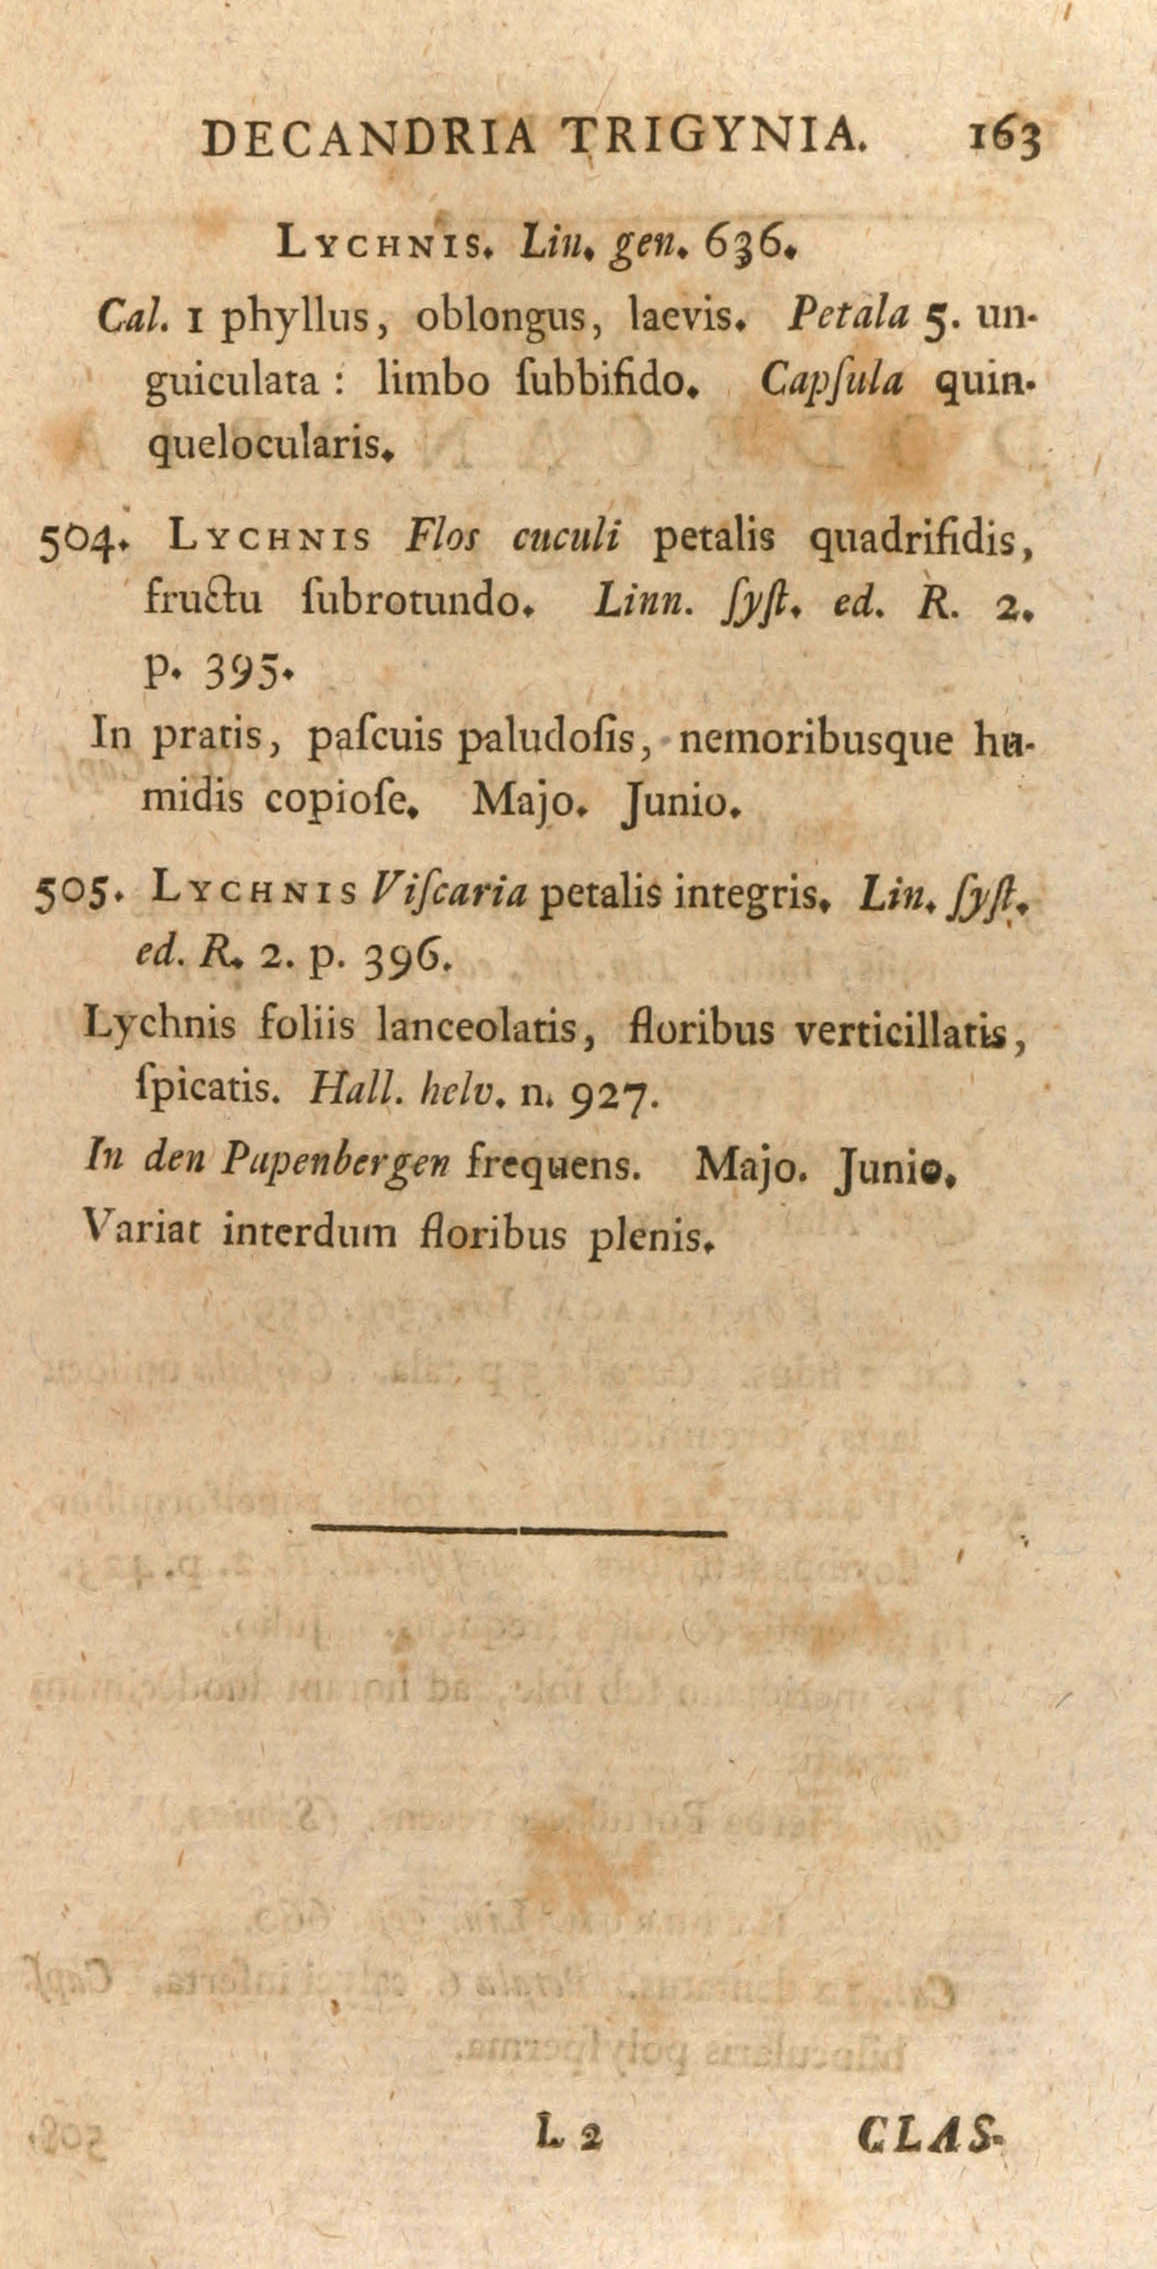 DECANDRIA TRIGYNIA. 163
LYCHNIS. Lin. gen. 636.
Cal. 1 phyllus, oblongus, laevis. Petala 5. un-
guiculata : limbo ſubbifido. Capſula quin-
quelocularis.
504. LYCHNIS Flos cuculi petalis quadrifidis,
fructu ſubrotundo. Linn. ſyſt. ed. R. 2.
p. 395.
In pratis, paſcuis paludoſis, nemoribusque hu-
midis copioſe. Majo. Junio.
505. LYCHNIS Viſcaria petalis integris. Lin. ſyſt.
ed. R. 2. p. 396.
Lychnis foliis lanceolatis, floribus verticillatis,
ſpicatis. Hall. helv. n. 927.
In den Papenbergen frequens. Majo. Junio.
Variat interdum floribus plenis.
L 2 CLAS-